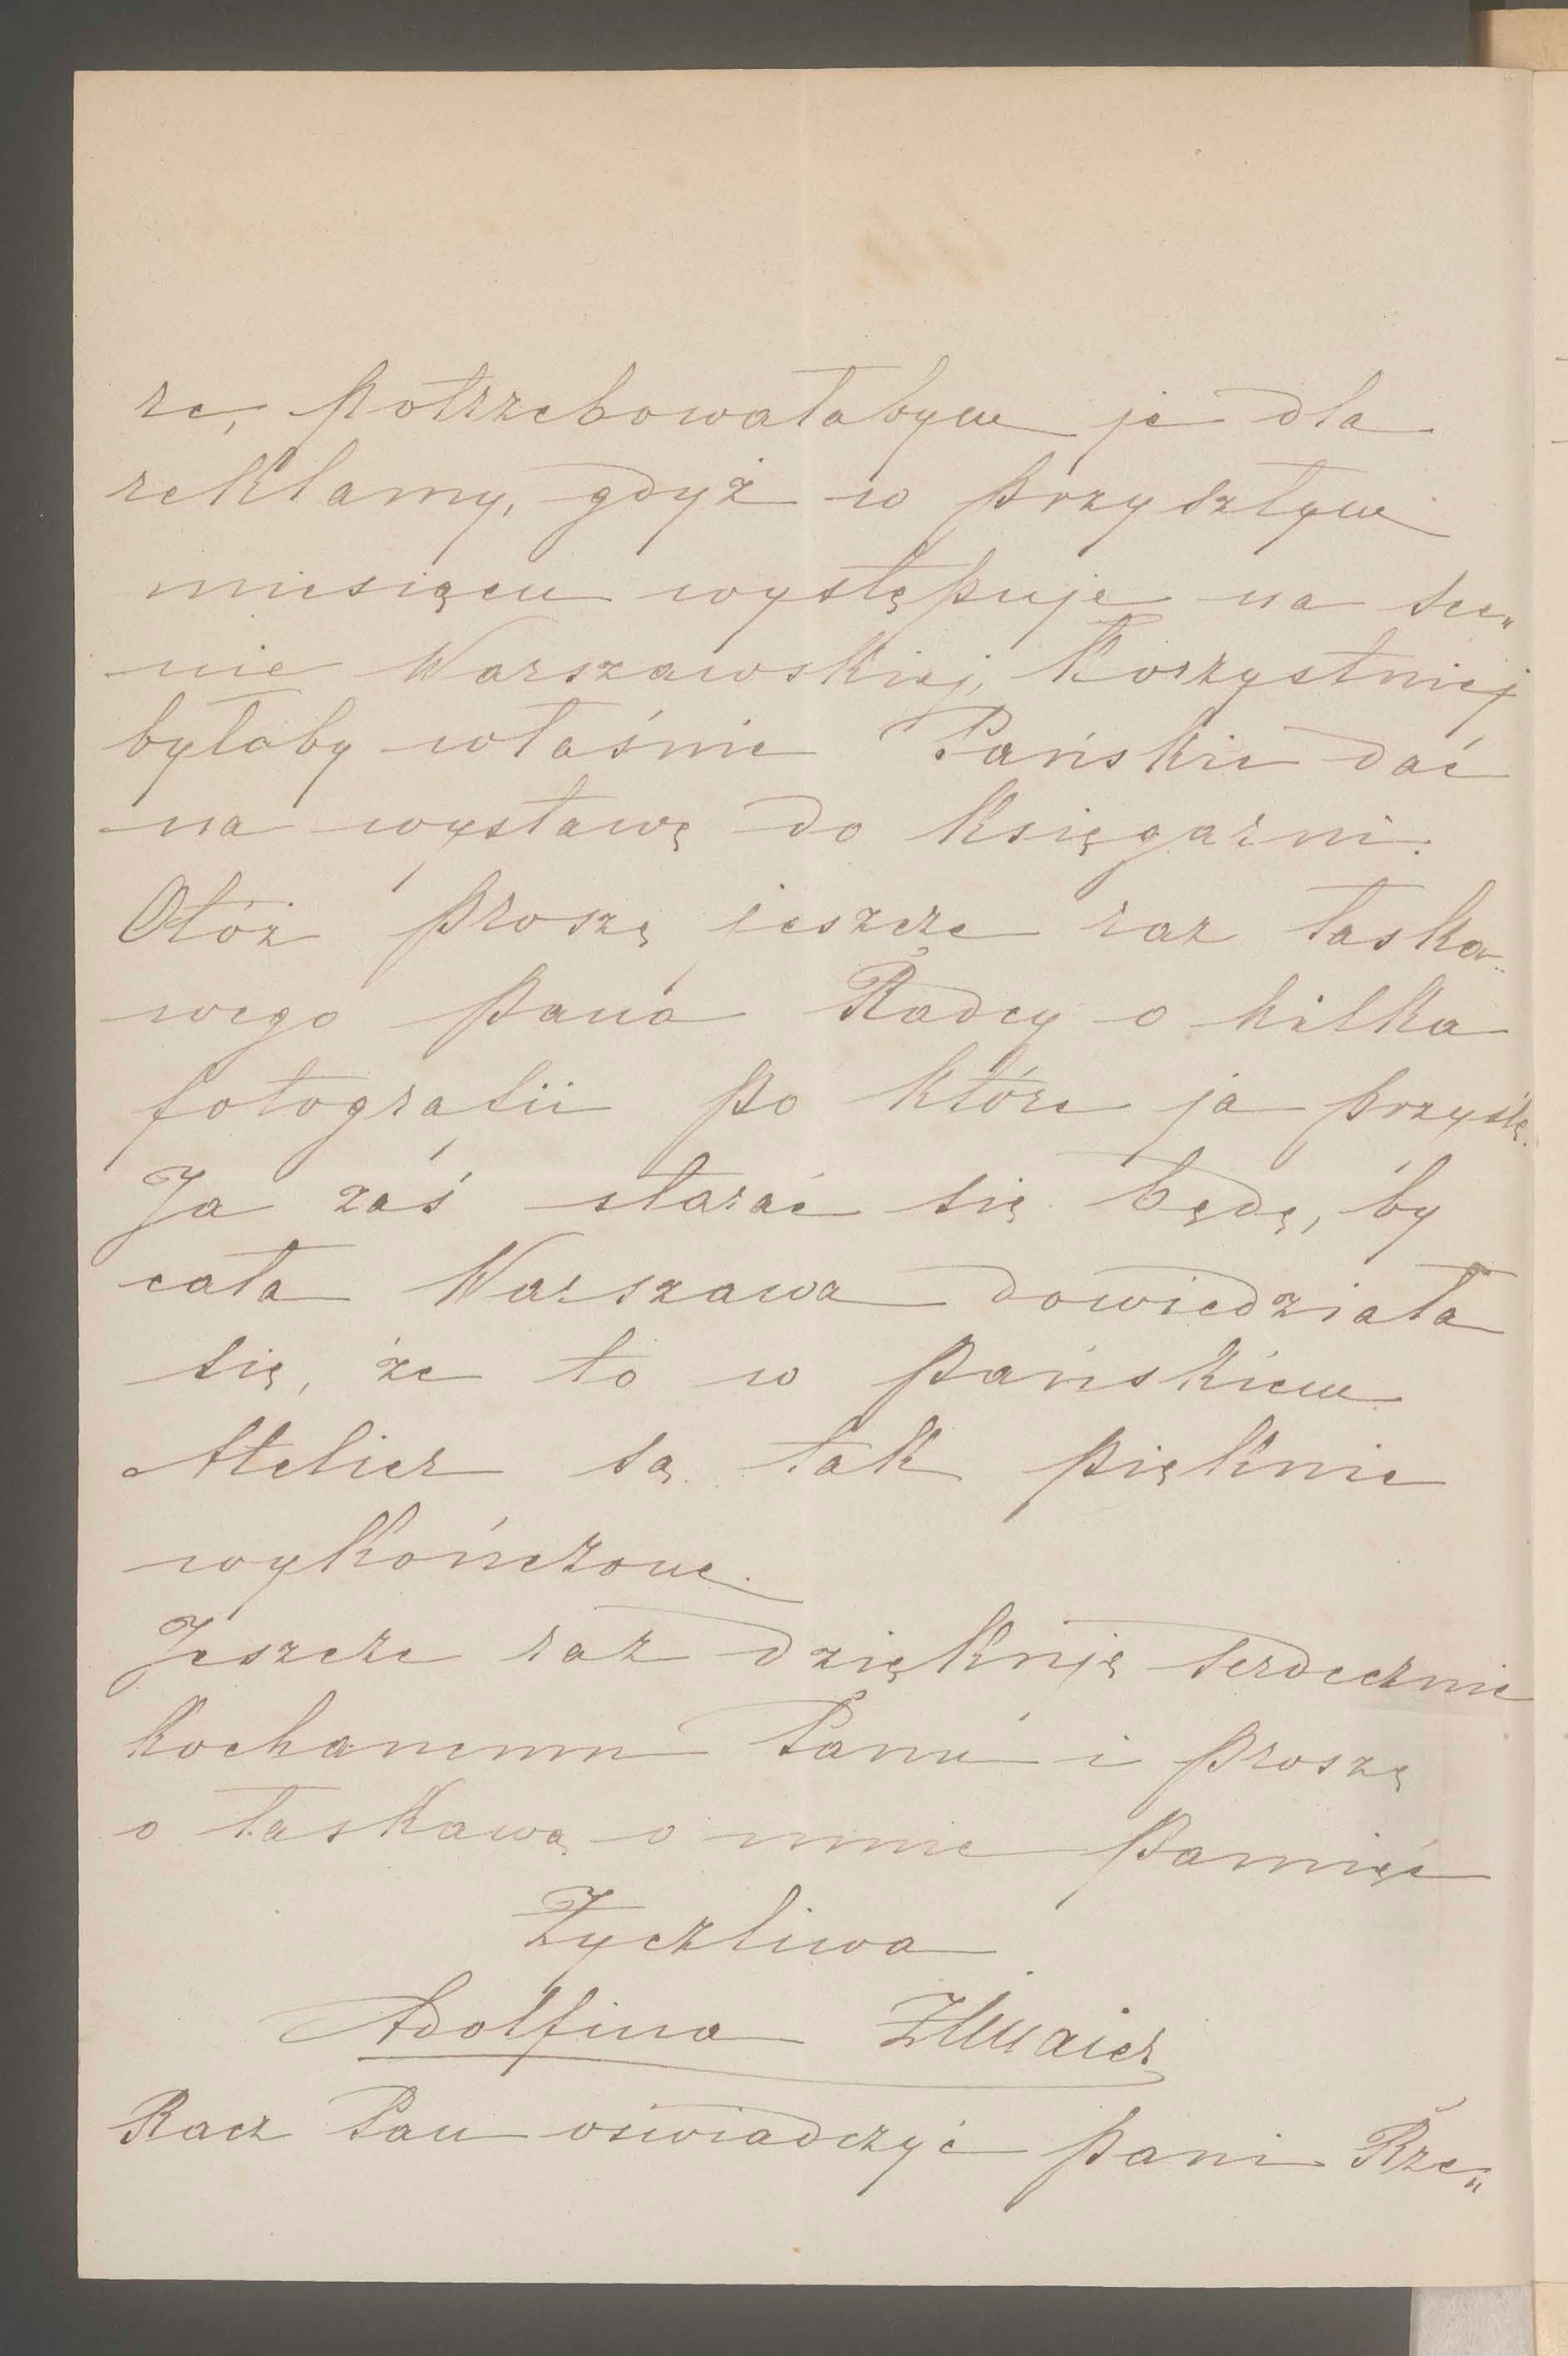 re, potrzebowałabym je dla
reklamy, gdyż w przyszłym
miesiącu występuje na sce„
nie Warszawskiej, Korzystniej
byłoby właśnie Pańskie dać
na wystawę do księgarni.
Otóż proszę jeszcze raz łaska„
wego Pana Radcy o kilka
fotografii po które ja przyślę.
Ja zaś starać się będę, by
cała Warszawa dowiedziała
się, że to w Pańskiem
Atelier są tak pięknie
wykończone.
Jeszcze raz dziękuję serdecznie
kochanemu Panu i proszę
o łaskawą o mnie pamięć
Życzliwa
Adolfina Zimajer
Racz Pan oświadczyć pani Rze„